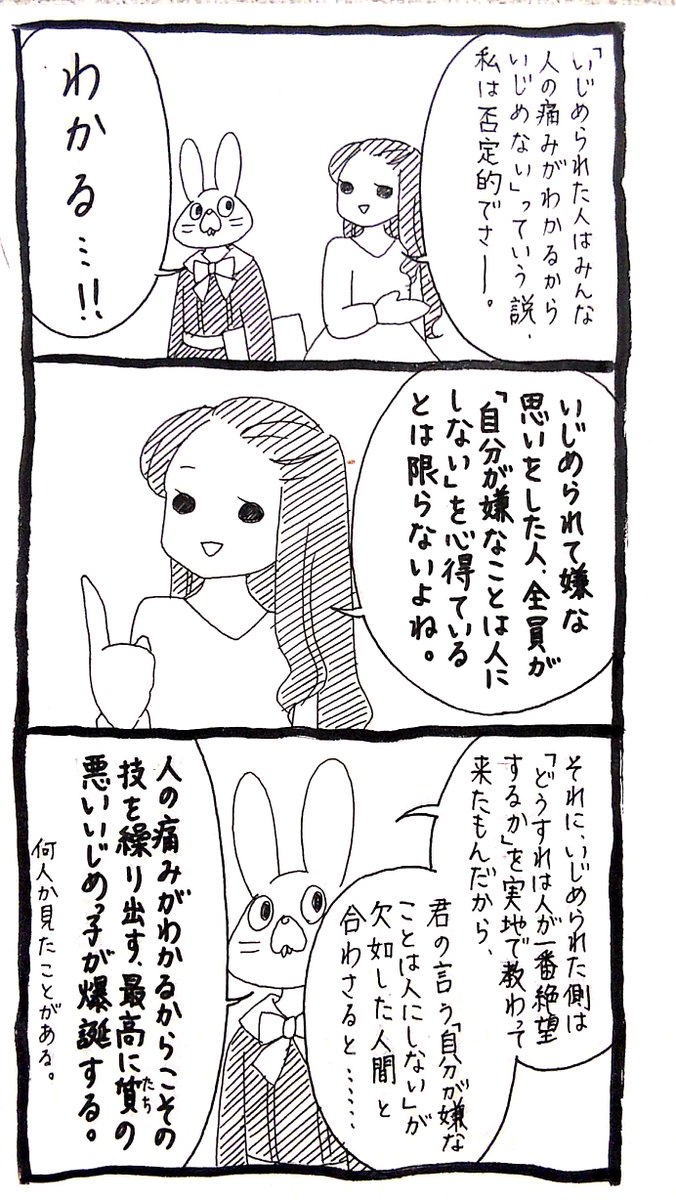 「いじめられた人はみんな
人の痛みがわかるから
いじめない」っていう説、
私は否定的でさー。
わかる…!!
いじめられて嫌な
思いをした人、全員が
「自分が嫌なことは人に
しない」を心得ている
とは限らないよね。
それに、いじめられた側は
「どうすれば人が一番絶望
するか」を実地で教わって
来たもんだから、
君の言う「自分が嫌な
ことは人にしない」が
欠如した人間と
合わさると……
人の痛みがわかるからこその
技を繰り出す、最高に質の
たち
悪いいじめっ子が爆誕する。
何人か見たことがある。